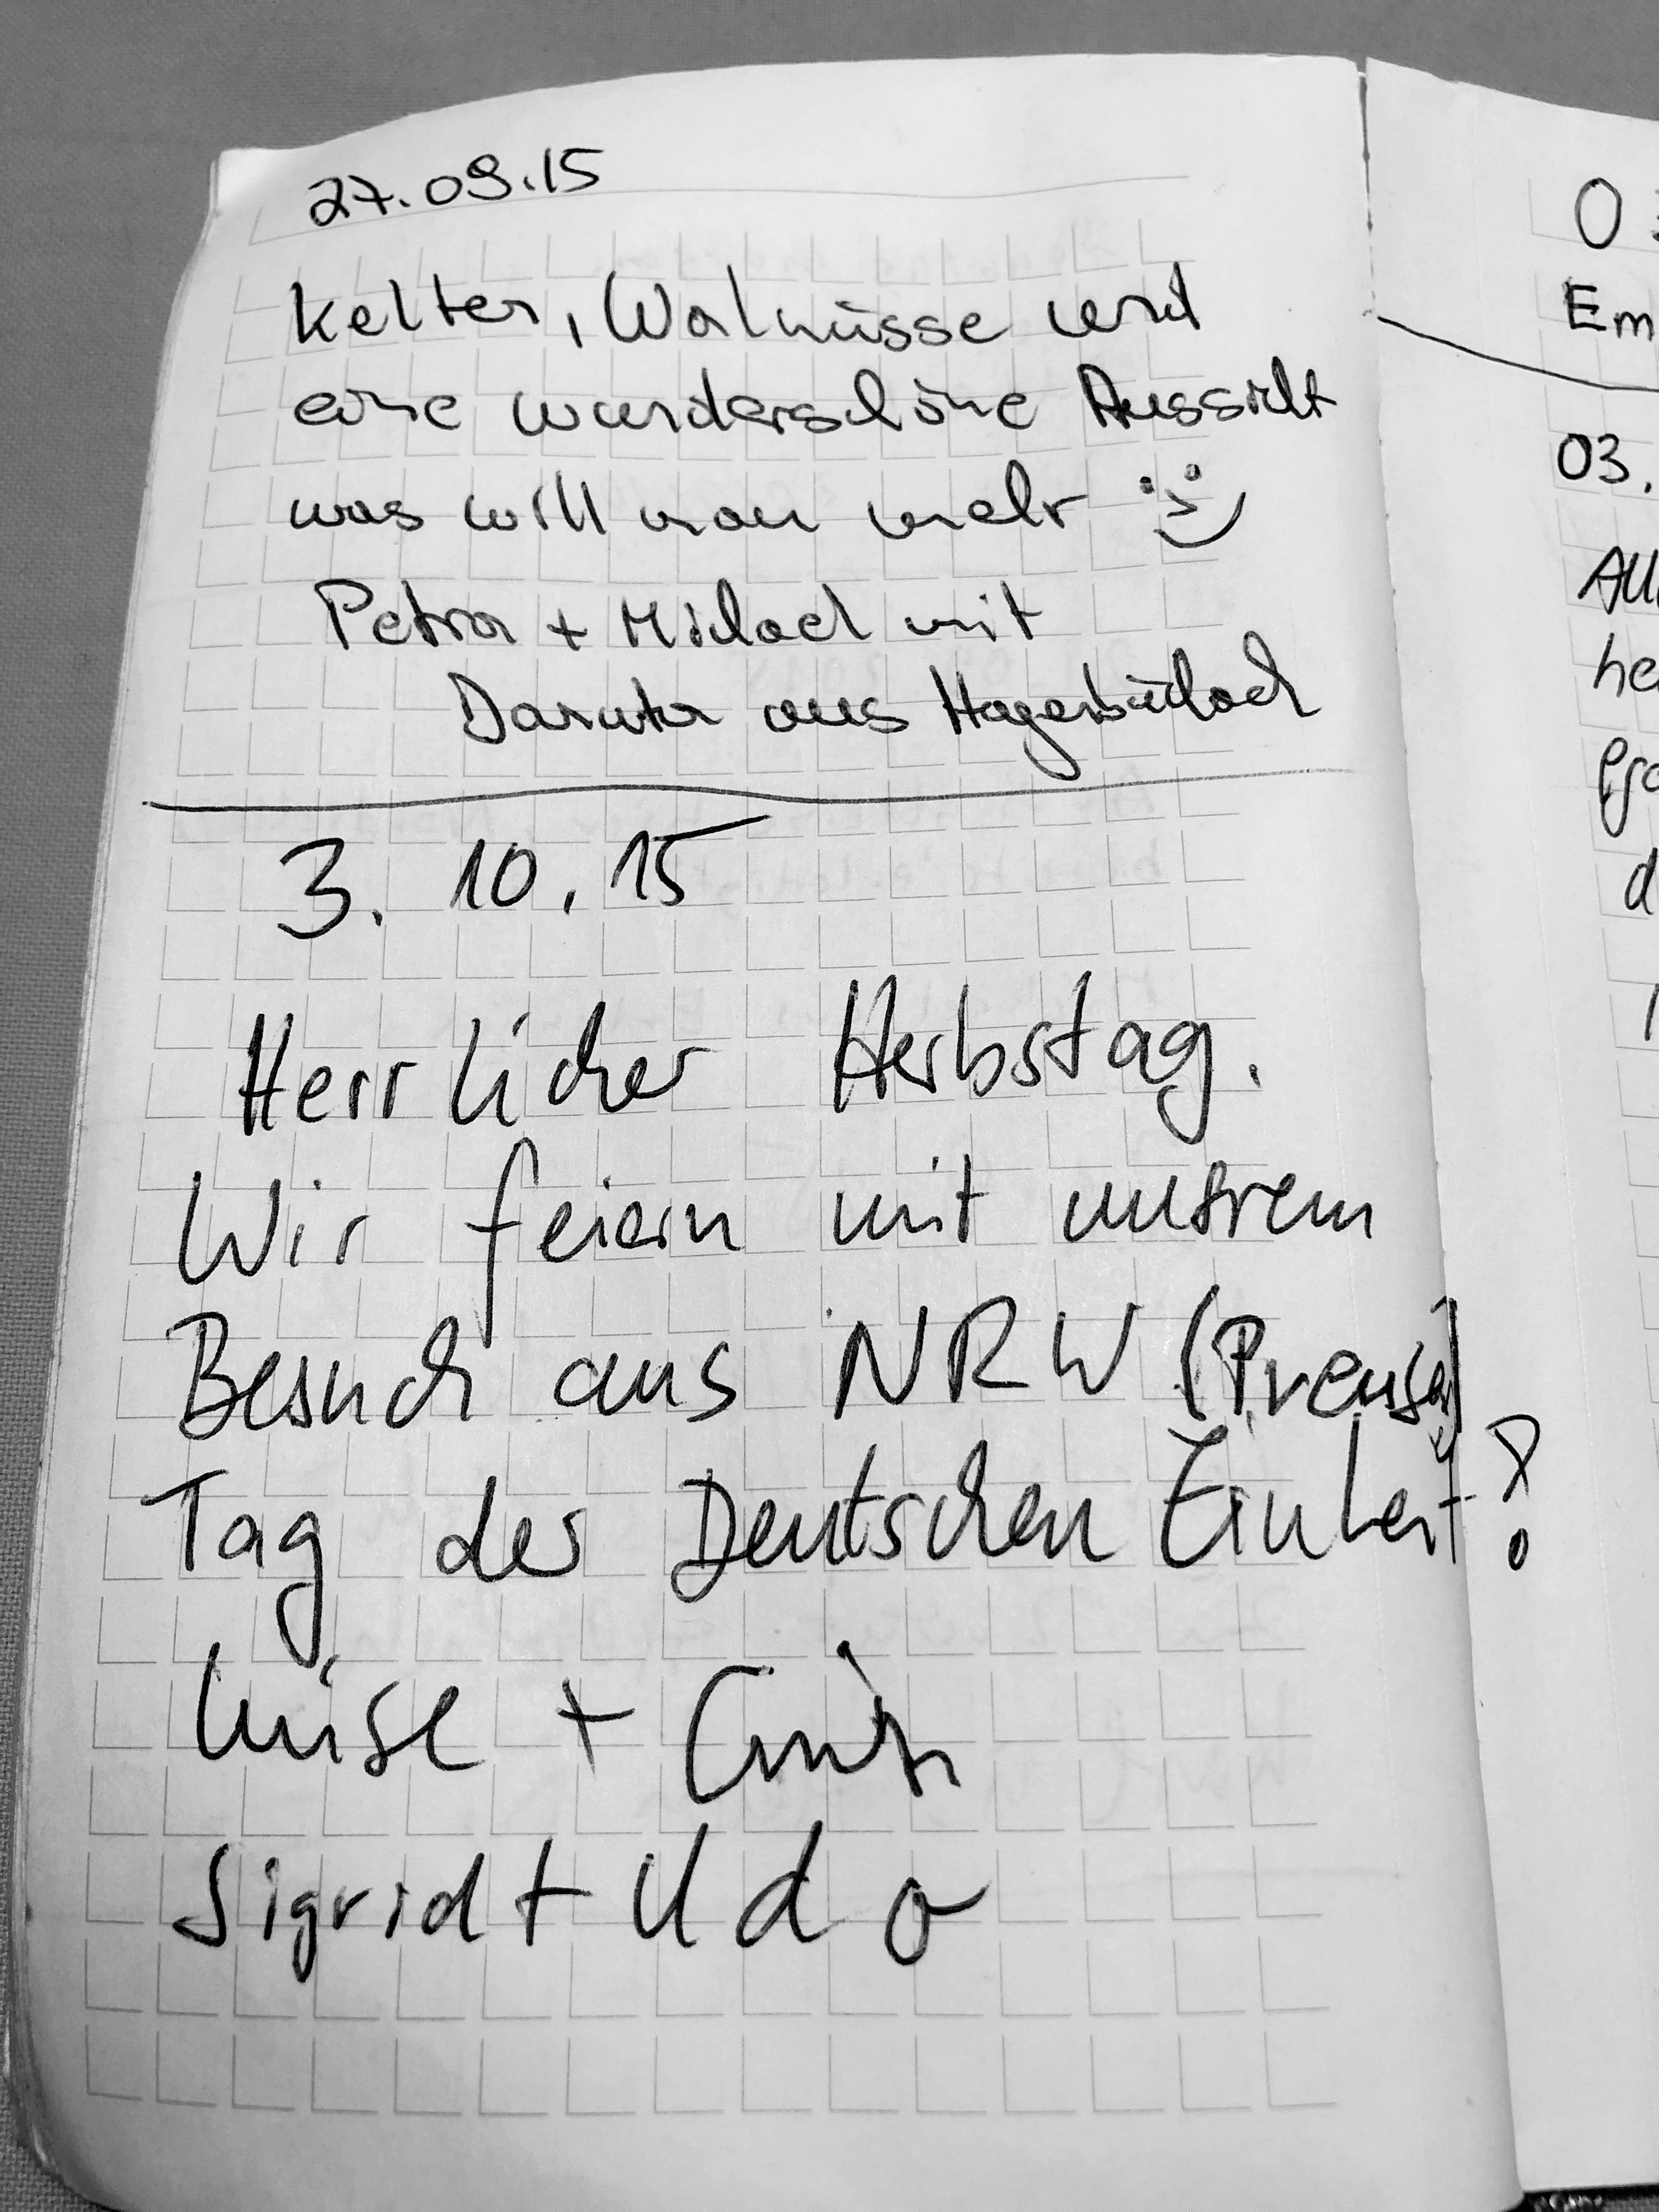 27.09.15
Kelter, Walnüsse und
eine wunderschöne Aussicht
was will man mehr :-)
Petra + Michael mit
aus Hagenbüchach
3. 10. 15
Herrlicher Herbstag.
Wir feiern mit unsrem
Besuch aus NRW (Preusen)
Tag der Deutschen Einheit!
Luise +
Sigrid + Udo
Em
03.
All
he
d